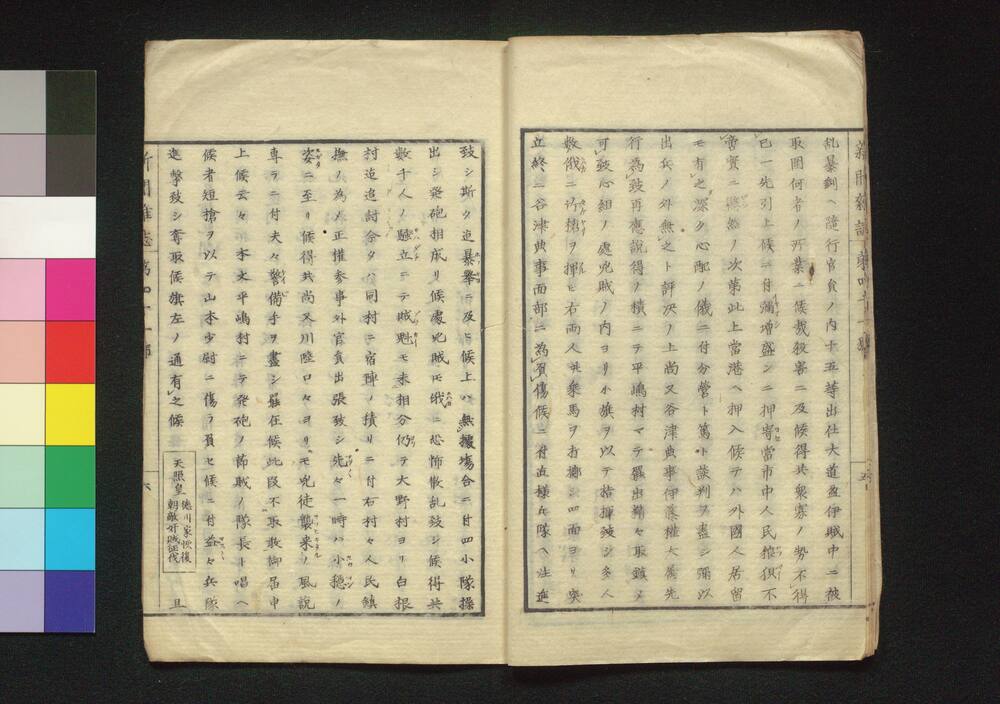 新聞雑誌 第四十一號
乱暴剰ヘ随行官員ノ内十五等出仕大道盈伊賊中ニ被
取囲何者ノ所業ニ候哉殺害ニ及候得共衆寡ノ勢不得
已一先引上候ニ付弥増盛ンニ押寄當市中人民猖獗不
ノ次第此上當港ヘ押入候テハ外國人居留
モ有之深ク心配ノ儀ニ付分營ト篤ト談判ヲ盡シ彌以
出兵ノ外無之ト評决ノ上尚又谷津典事伊藤權大屬先
行為致再應説得ノ積ニテ平嶋村マテ罷出精々取鎮メ
可致心組ノ處兇賊ノ内ヨリ小旗ヲ以テ指揮致シ多人
數俄ニ竹槍ヲ揮ヒ右両人共乘馬ヲ打擲シ四面ヨリ突
立終ニ谷津典事面部ニ為負傷候ニ付直様兵隊ヘ注進
五
致シ斯ク迄暴擧ニ及ヒ候上ハ無據場合ニ付四小隊操
出シ発砲相成リ候處兇賊モ俄ニ恐怖散乱致シ候得共
數千人ノ騒立ニテ賊魁モ未相分仍テ大野村ヨリ白根
討迄追討余タハ同村ニ宿陣ノ積リニ付右村々人民鎮
撫ノ為メ正權参事外官員出張致シ先々一時ハ小穏ノ
姿ニ至リ候得共尚又川陸口々ヨリモ兇徒襲来ノ風説
専ラニ付夫々警備手ヲ盡シ羅在候此段不取敢御届申
上候云々 本文平嶋村ニテ発砲ノ節賊ノ隊長ト唱ヘ
候者短槍ヲ以テ山本少尉ニ傷ヲ負セ候ニ付益々兵隊
進撃致シ奪取候旗左ノ通有之候
天照皇
徳川家恢復
朝敵奸賊征伐
且
新聞雑誌 第四十一號
六